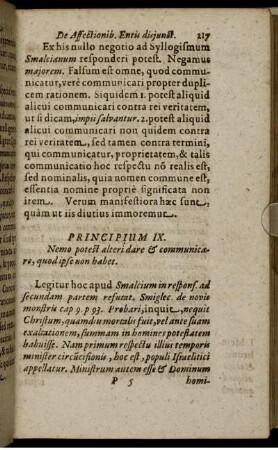 De Affectionib. Entis disjunct. 217
Ex his nullo negotio ad Syllogismum
Smalcianum responderi potest. Negamus
majorem. Falsum est omne, quod commu-
nicatur, verè communicari propter dupli-
cem rationem. Siquidem 1. potest aliquid
alicui communicari contra rei veritatem,
ut si dicam, impii salvantur. 2. potest aliquid
alicui communicari non quidem contra
rei veritatem, sed tamen contra termini,
qui communicatur, proprietatem, & talis
communicatio hoc respectu nō realis est,
sed nominalis, quia nomen commune est,
essentia nomine propriè significata non
item. Verum manifestiora hæc sunt,
quàm ut iis diutius immoremur.
PRINCIPIUM IX.
Nemo potest alteri dare & communica-
re, quod ipse non habet.
Legitur hoc apud Smalcium in respons. ad
secundam partem refutat. Smiglec. de novis
monstris cap 9. p 93. Probari, inquit, nequit
Christum, quamdiu mortalis fuit, vel ante suam
exaltationem, summam in homines potestatem
habuisse. Nam primum respectu illius temporis
minister circūcisionis, hoc est, populi Israelitici
appellatur. Ministrum autem esse & Dominum
P 5 homi-